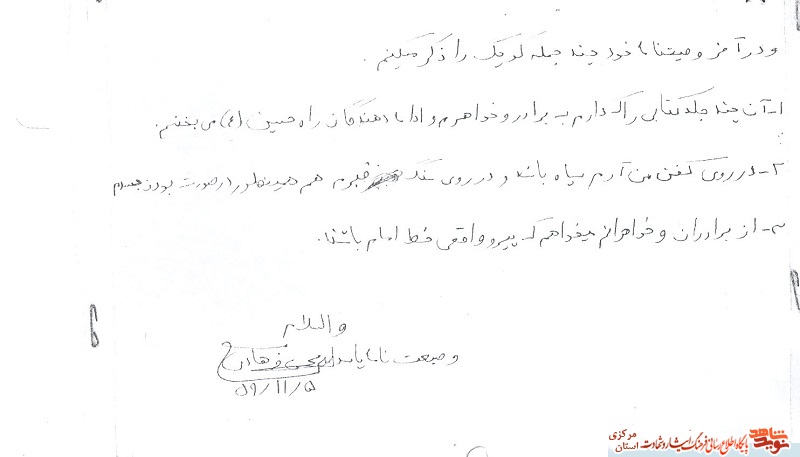 و در آخر وصیتنامه خود چند جمله کوچک را ذکر میکنم.
۱- آن چند جلد کتابی را که دارم به برادر و خواهرم و ادامه دهندگان راه حسین (ع) می بخشم.
۲- در روی کفن من آرم سپاه باشد و در روی سنگ قبرم هم همینطور در صورت بودن جسدم
۳- از برادران و خواهرانم میخواهم که پیرو واقعی خط امام باشند.
والسلام
وصیت نامه پاسدار محسن فرهادی
۵۹/۱۱/۵
نوید شاهد
پایگاه اطلاع رسانی فرهنگ ایثار و شهادت استان مرکزی